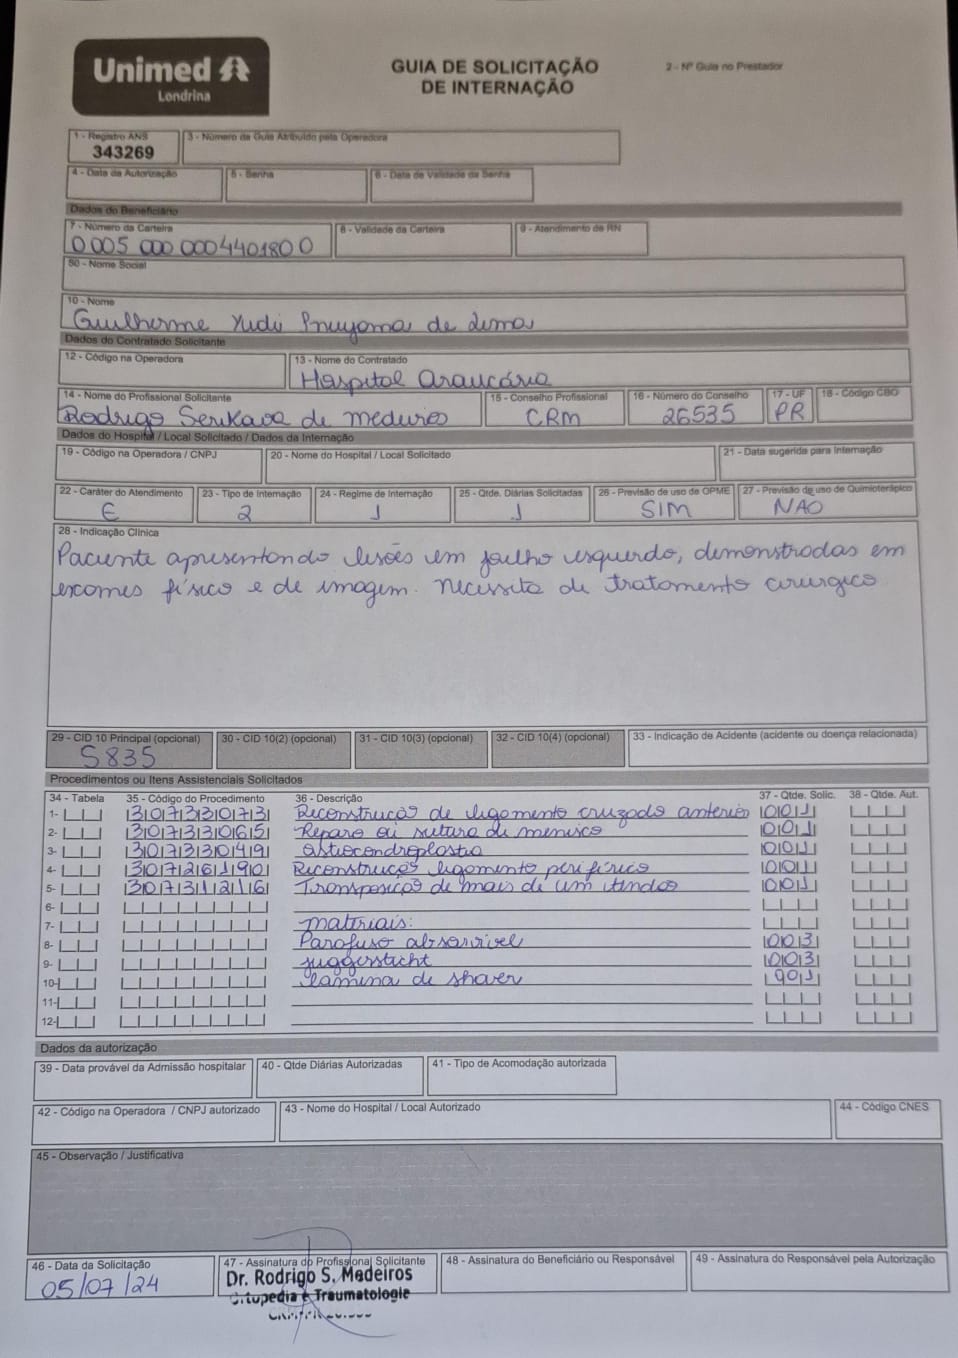 Unimed
Londrina
GUIA DE SOLICITAÇÃO
DE INTERNAÇÃO
2 - Nº Guia no Prestador
1 - Registro ANS
343269
3 - Número da Guia Atribuído pela Operadora
4 - Data da Autorização
5 - Senha
6 - Data de Validade da Senha
Dados do Beneficiário
7 - Número da Carteira
0005 000 0004401800
8 - Validade da Carteira
9 - Atendimento de RN
50 - Nome Social
10 - Nome
Guilherme Yudi de Lima
Dados do Contratado Solicitante
12 - Código na Operadora
13 - Nome do Contratado
Hospital Araucária
14 - Nome do Profissional Solicitante
Rodrigo Serikava de Medeiros
15 - Conselho Profissional
CRM
16 - Número do Conselho
26535
17 - UF
PR
18 - Código CBO
Dados do Hospital / Local Solicitado / Dados da Internação
19 - Código na Operadora / CNPJ
20 - Nome do Hospital / Local Solicitado
21 - Data sugerida para Internação
22 - Caráter do Atendimento
E
23 - Tipo de Internação
2
24 - Regime de Internação
1
25 - Qtde. Diárias Solicitadas
1
26 - Previsão de uso de OPME
SIM
27 - Previsão de uso de Quimioterápico
NAO
28 - Indicação Clínica
Paciente apresentando lesões em joelho esquerdo, demonstradas em
exames físico e de imagem. Necessita de tratamento cirurgico
29 - CID 10 Principal (opcional)
S835
30 - CID 10(2) (opcional)
31 - CID 10(3) (opcional)
32 - CID 10(4) (opcional)
33 - Indicação de Acidente (acidente ou doença relacionada)
Procedimentos ou Itens Assistenciais Solicitados
34 - Tabela 35 - Código do Procedimento 36 - Descrição 37 - Qtde. Solic. 38 - Qtde. Aut.
1- 30733073 Reconstrução de ligamento cruzado anterior 001
2- 30733065 Reparo ou sutura de menisco 001
3- 30733049 osteocondroplastia 001
4- 30726190 Reconstrução ligamento periférico 001
5- 30731216 Transposição de mais de um tendão 001
6-
7- materiais:
8- Parafuso absorvivel 003
9- 003
10- lamina de shaver 001
11-
12-
Dados da autorização
39 - Data provável da Admissão hospitalar
40 - Qtde Diárias Autorizadas
41 - Tipo de Acomodação autorizada
42 - Código na Operadora / CNPJ autorizado
43 - Nome do Hospital / Local Autorizado
44 - Código CNES
45 - Observação / Justificativa
46 - Data da Solicitação
05/07/24
47 - Assinatura do Profissional Solicitante
Dr. Rodrigo S. Medeiros
Ortopedia e Traumatologia
48 - Assinatura do Beneficiário ou Responsável
49 - Assinatura do Responsável pela Autorização